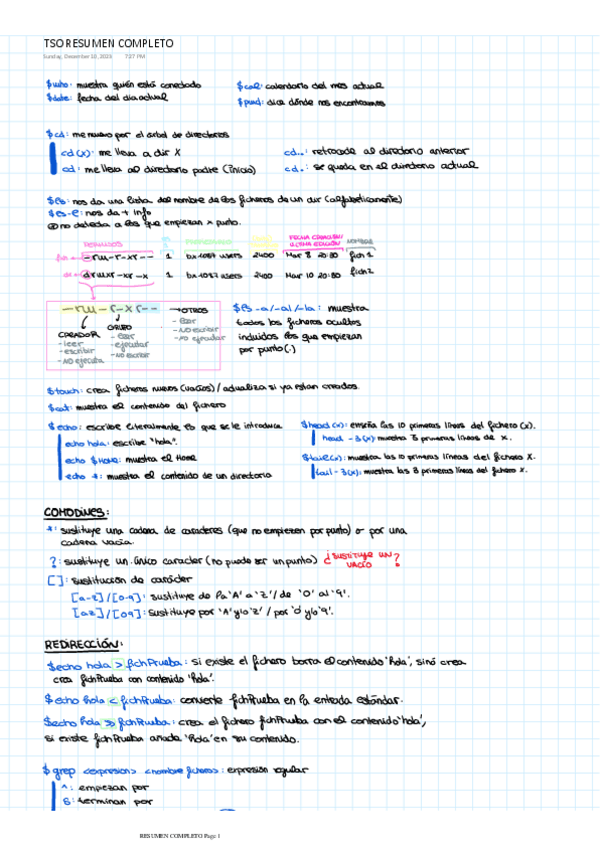 TSO RESUMEN COMPLETO
Sunday, December 10, 2023 7:27 PM
$who: muestra quién está conectado
$cal: calendario del mes actual
$date: fecha del dia actual
$pwd: dice dónde nos encontramos
$cd: me muevo por el árbol de directorios
cd (x): me lleva a dir X
cd..: retrocede al directorio anterior
cd: me lleva al directorio padre (inicio)
cd.: se queda en el directorio actual
$ls: nos da una lista del nombre de los ficheros de un dir (alfabéticamente)
$ls-l: nos da + info
no detecta a los que empiezan x punto.
PERMISOS
FECHA CREACIÓN/
ÚLTIMA EDICIÓN
NOMBRE
-rw-r-xr-- 1 users 2400 Mar 8 20:30 fich1
drwxr-xr-x 1 users 2400 Mar 10 20:30 fich2
-rw-r-xr--
OTROS
- leer
- NO escribir
- NO ejecutar
GRUPO
- leer
- ejecutar
- NO escribir
CREADOR
- leer
- escribir
- NO ejecuta
$ls -a/-al/-la: muestra
todos los ficheros ocultos
incluidos los que empiezan
por punto(.)
$touch: crea ficheros nuevos (vacíos)/actualiza si ya estan creados.
$cat: muestra el contenido del fichero
$echo: escribe literalmente lo que se le introduce
echo hola: escribe "hola".
echo $HOME: muestra el Home
echo *: muestra el contenido de un directorio
$head(x): enseña las 10 primeras líneas del fichero (x).
head -3(x): muestra 3 primeras líneas de x.
$tail(x): muestra las 10 primeras líneas del fichero X.
tail-3(x): muestra las 3 primeras líneas del fichero X.
COMODINES:
*: sustituye una cadena de caracteres (que no empiezen por punto) o por una
cadena vacía.
?: sustituye un único caracter (no puede ser un punto) ¿SUSTITUYE UN
VACÍO?
[]: sustitución de carácter
[a-z]/[0-9]: sustituye de la 'A' a 'Z'/de '0' al '9'.
[az]/[09]: sustituye por 'A' y/o 'Z'/por '0' y/o '9'.
REDIRECCIÓN:
$echo hola > fichPrueba: si existe el fichero borra el contenido 'hola', sinó crea
crea fichPrueba con contenido 'hola'.
$echo hola < fichPrueba: convierte fichPrueba en la entrada estándar.
$echo hola >> fichPrueba: crea el fichero fichPrueba con el contenido 'hola',
si existe fichPrueba añade 'hola' en su contenido.
$grep <expresion> <nombre fichero>: expresión regular
^: empiezan por
$: terminan por
RESUMEN COMPLETO Page 1